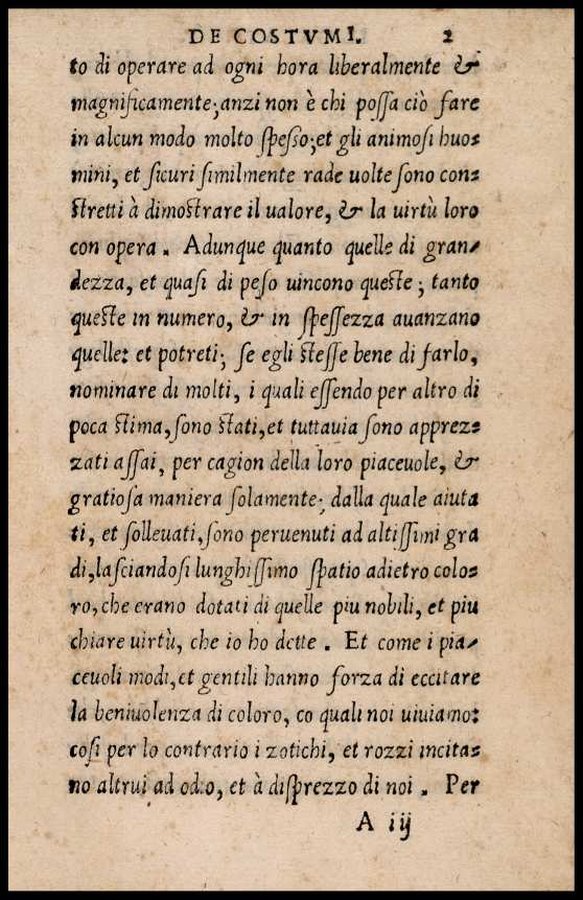 DE COSTVMI. 2
to di operare ad ogni hora liberalmente &
magnificamente;anzi non è chi poſſa ciò fare
in alcun modo molto ſpeſſo;et gli animoſi huo⸗
mini, et ſicuri ſimilmente rade uolte ſono con⸗
ſtretti à dimoſtrare il ualore, & la uirtù loro
con opera . Adunque quanto quelle di gran⸗
dezza, et quaſi di peſo uincono queſte ; tanto
queſte in numero, & in ſpeſſezza auanzano
quelle: et potreti; ſe egli ſteſſe bene di farlo,
nominare di molti, i quali eſſendo per altro di
poca ſtima,ſono ſtati,et tuttauia ſono apprez⸗
zati aſſai, per cagion della loro piaceuole, &
gratioſa maniera ſolamente; dalla quale aiuta
ti, et ſolleuati,ſono peruenuti ad altiſſimi gra
di,laſciandoſi lunghiſſimo ſpatio adietro colo⸗
ro,che erano dotati di quelle piu nobili, et piu
chiare uirtù, che io ho dette . Et come i pia⸗
ceuoli modi,et gentili hanno forza di eccitare
la beniuolenza di coloro, co quali noi uiuiamo:
coſi per lo contrario i zotichi, et rozzi incita⸗
no altrui ad odio, et à diſprezzo di noi . Per
A iij